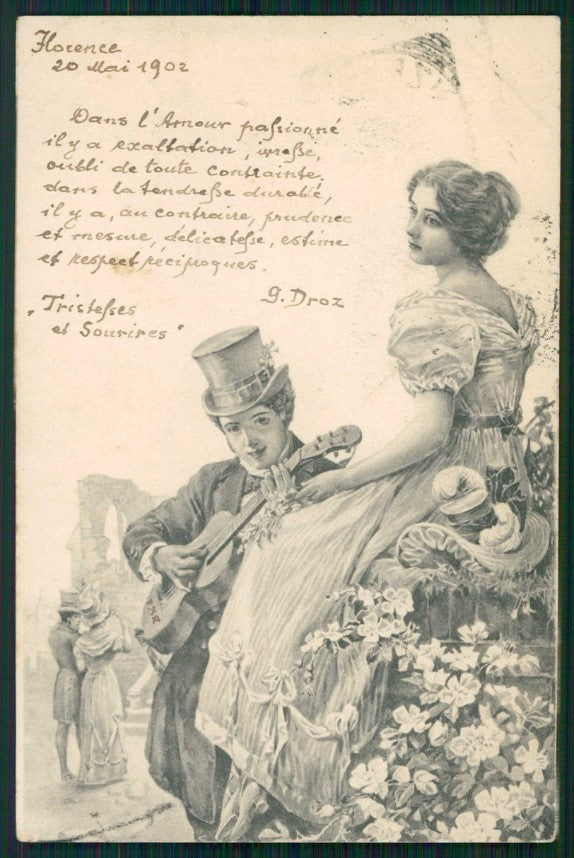 Florence
20 Mai 1902
Dans l'Amour passionné
il y a exaltation, ivresse,
oubli de toute contrainte,
dans la tendresse durable,
il y a, au contraire, prudence
et mesure, délicatesse, estime
et respect réciproques.
G. Droz
"Tristesses
et Sourires"